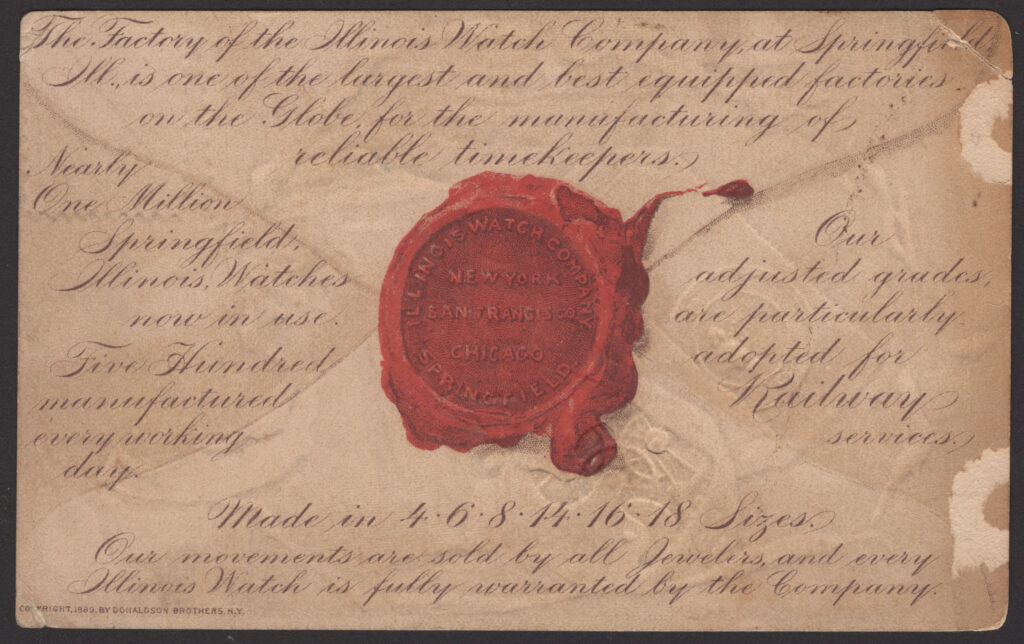 The Factory of the Illinois Watch Company, at Springfield,
Ill., is one of the largest and best equipped factories
on the Globe, for the manufacturing of
reliable timekeepers.
Nearly
One Million
Springfield,
Illinois, Watches
now in use.
Five Hundred
manufactured
every working
day.
ILLINOIS WATCH COMPANY
NEW YORK
SAN FRANCISCO
CHICAGO
SPRINGFIELD.
Our
adjusted grades,
are particularly
adopted for
Railway
services.
Made in 4·6·8·14·16·18 Sizes.
Our movements are sold by all Jewelers, and every
Illinois Watch is fully warranted by the Company.
COPYRIGHT, 1889, BY DONALDSON BROTHERS, N.Y.